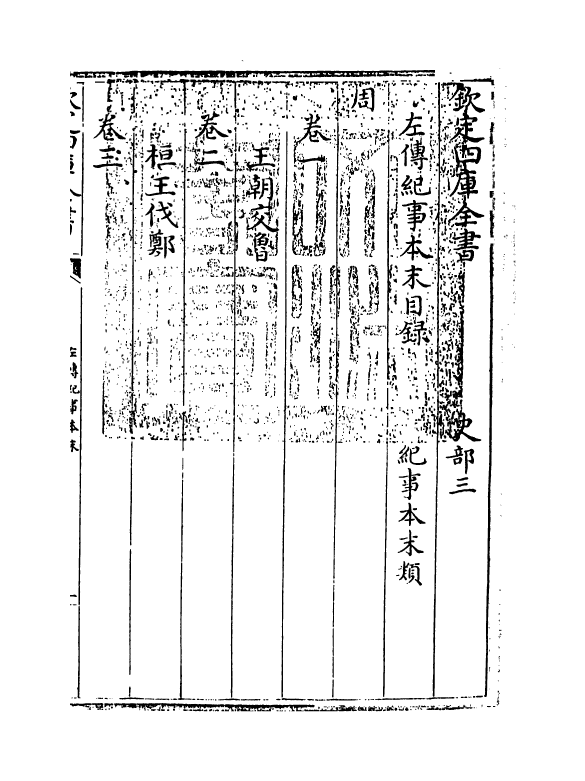 欽定四庫全書　史部三
左傳紀事本末目錄　紀事本末類
周
卷一
王朝交魯
卷二
桓王伐鄭
卷三
左傳紀事本末
一